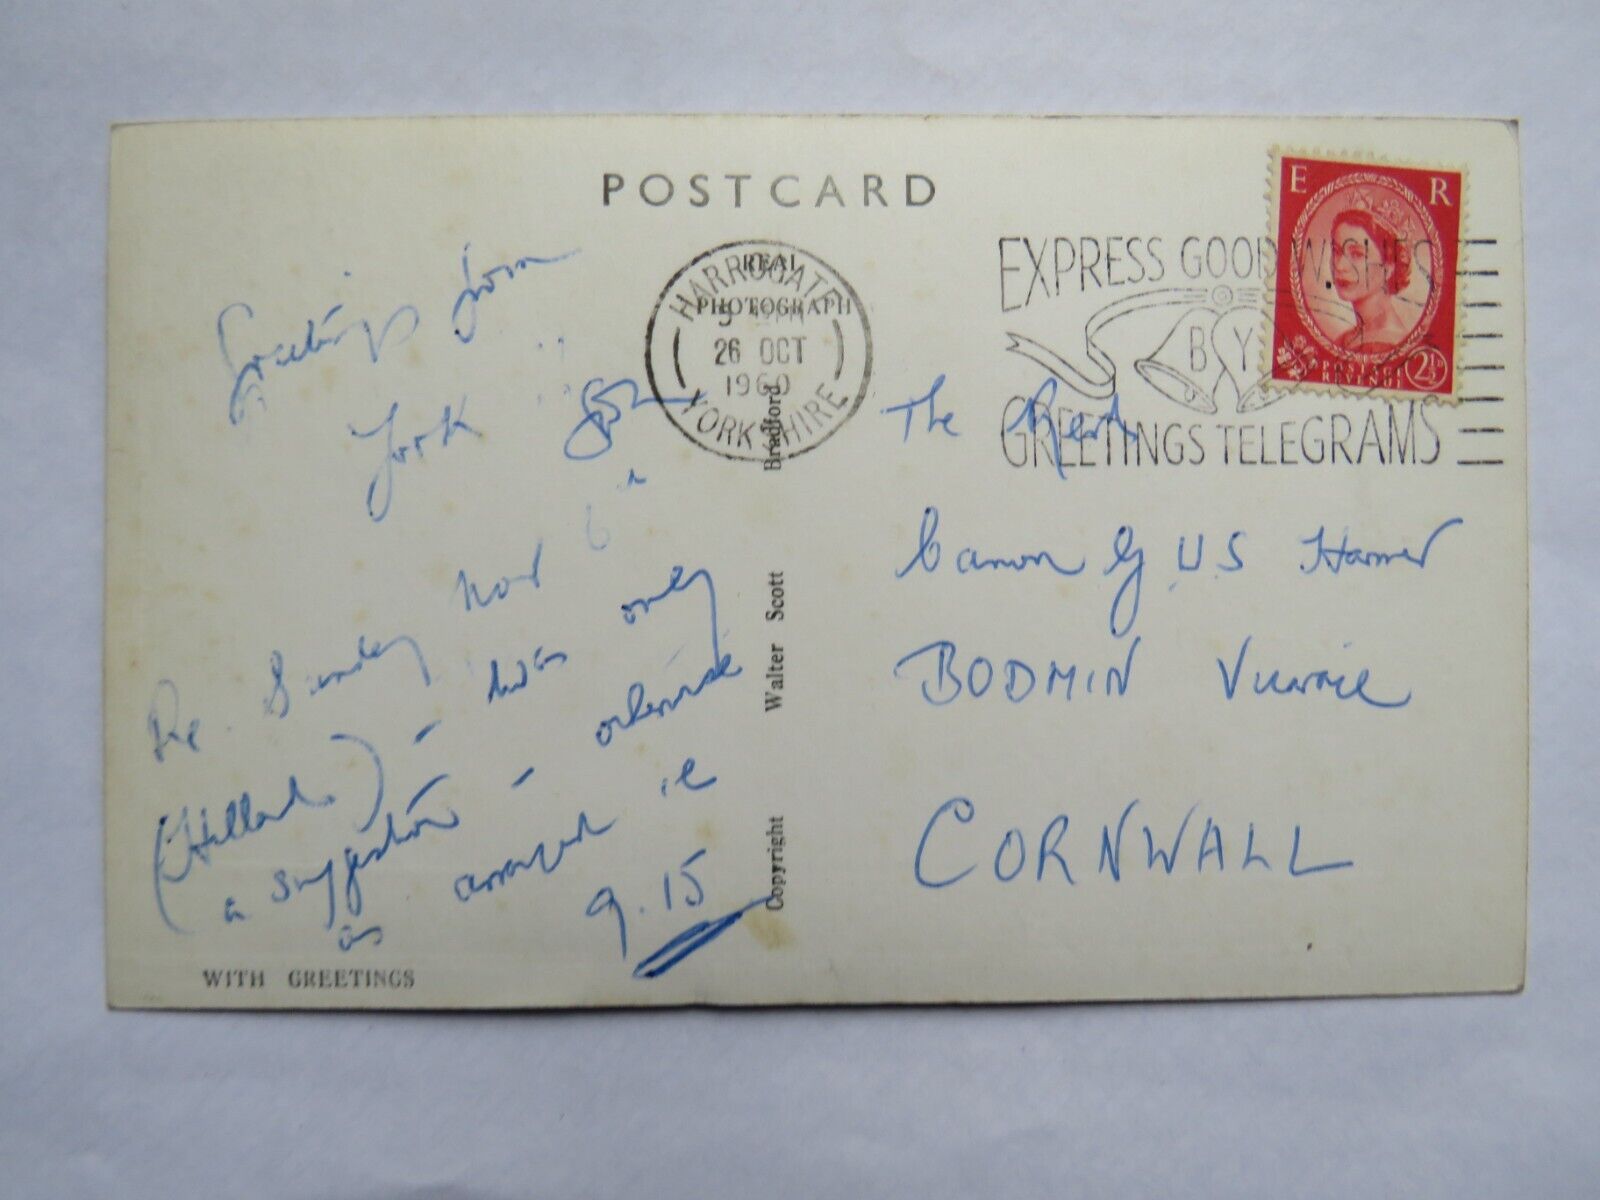 POSTCARD
REAL
PHOTOGRAPH
HARROGATE
26 OCT
1960
YORKSHIRE
EXPRESS GOOD WISHES
BY
GREETINGS TELEGRAMS
E R
POSTAGE
REVENUE
2½
Greetings from
York
Re. Sunday Nov 6
- was only
a suggestion - otherwise
as arranged ie
9.15
WITH GREETINGS
Copyright Walter Scott Bradford
The Revd
Canon G U S Harmer
BODMIN Vicarage
CORNWALL